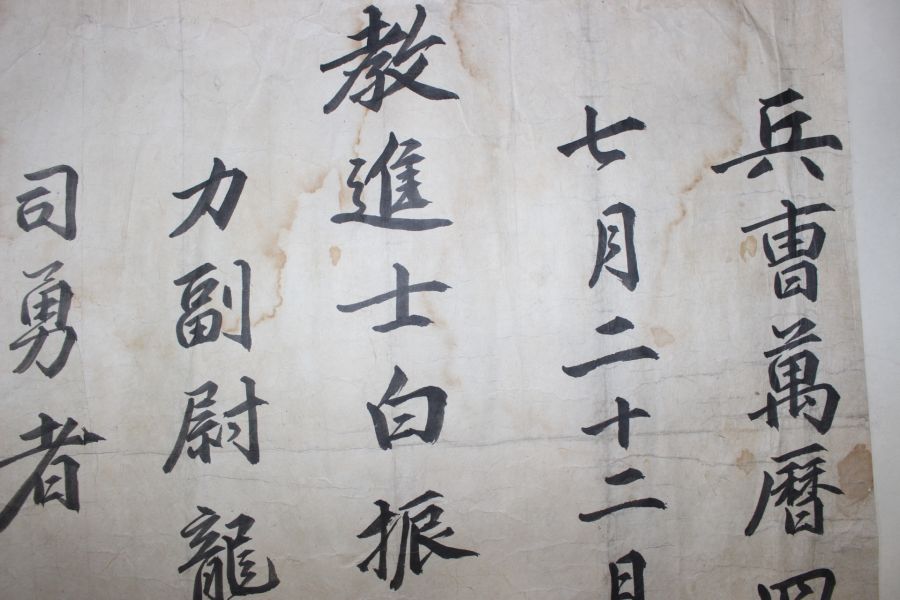 兵曺萬曆四
七月二十二日
教進士白振
力副尉龍
司勇者